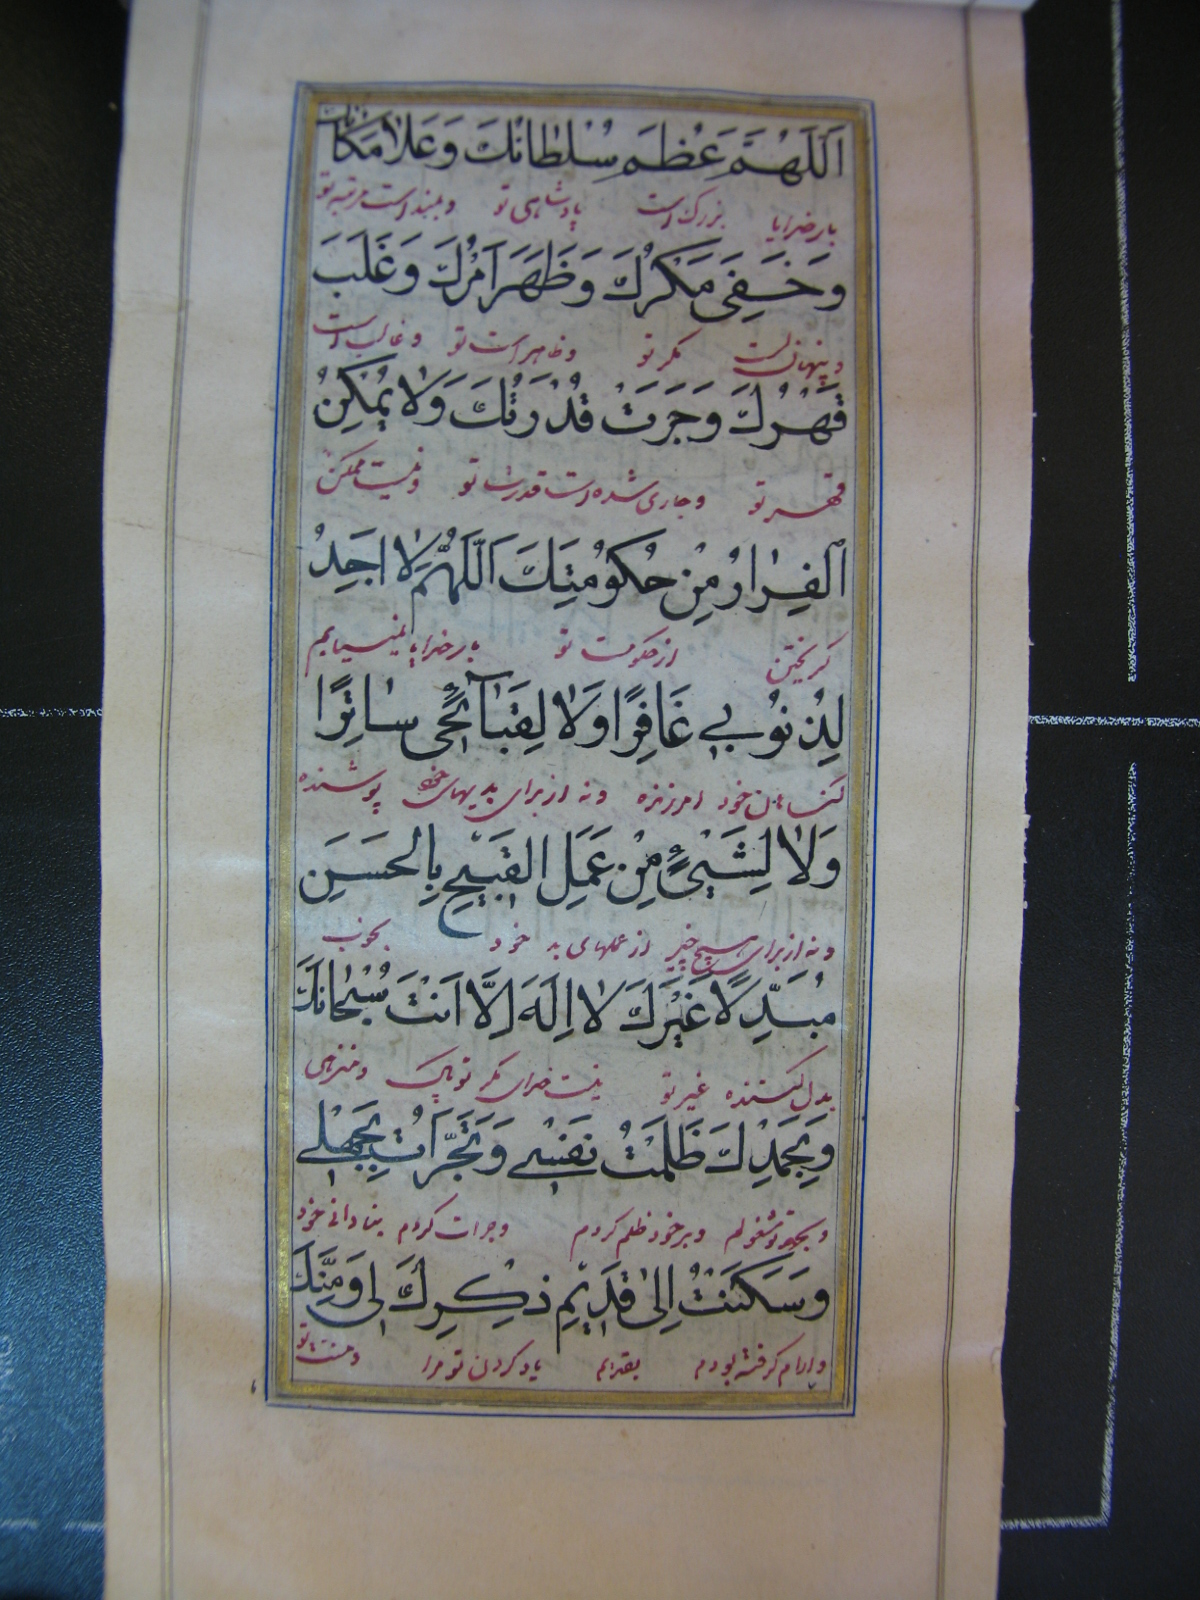 اَللّٰهُمَّ عَظُمَ سُلْطانُكَ وَعَلا مَكانُكَ
بار خدایا بزرک است پادشاهی تو و بلند است مرتبه تو
وَخَفِىَ مَكْرُكَ وَظَهَرَ اَمْرُكَ وَغَلَبَ
و پنهانست مکر تو و ظاهر است تو و غالب است
قَهْرُكَ وَجَرَتْ قُدْرَتُكَ وَلا يُمْكِنُ
قهر تو و جاری شده است قدرت تو و نیست ممکن
اَلْفِرارُ مِنْ حُكُومَتِكَ اَللّٰهُمَّ لا اَجِدُ
کریختن از حکومت تو بار خدایا نمییابم
لِذُنُوبى غافِرًا وَلا لِقَبآئِحى ساتِرًا
کناهان خود امرزنده و نه از برای بدیهای خود پوشنده
وَلا لِشَيْىءٍ مِنْ عَمَلِ القَبيحِ بِالْحَسَنِ
و نه از برای هیچ چیز از عملهای بد خود بخوب
مُبَدِّلًا غَيْرَكَ لا اِلٰهَ اِلَّا اَنْتَ سُبْحانَكَ
بدل کننده غیر تو نیست خدای مکر تو پاک و منزهی
وَبِحَمْدِكَ ظَلَمْتُ نَفْسى وَتَجَرَّاْتُ بِجَهْلى
و بحمد تو مشغولم و بر خود ظلم کردم و جرات کردم بنادانی خود
وَسَكَنْتُ اِلىٰ قَديمِ ذِكْرِكَ لى وَمَنِّكَ
و ارام کرفته بودم بقدیم یاد کردن تو مرا و منت تو